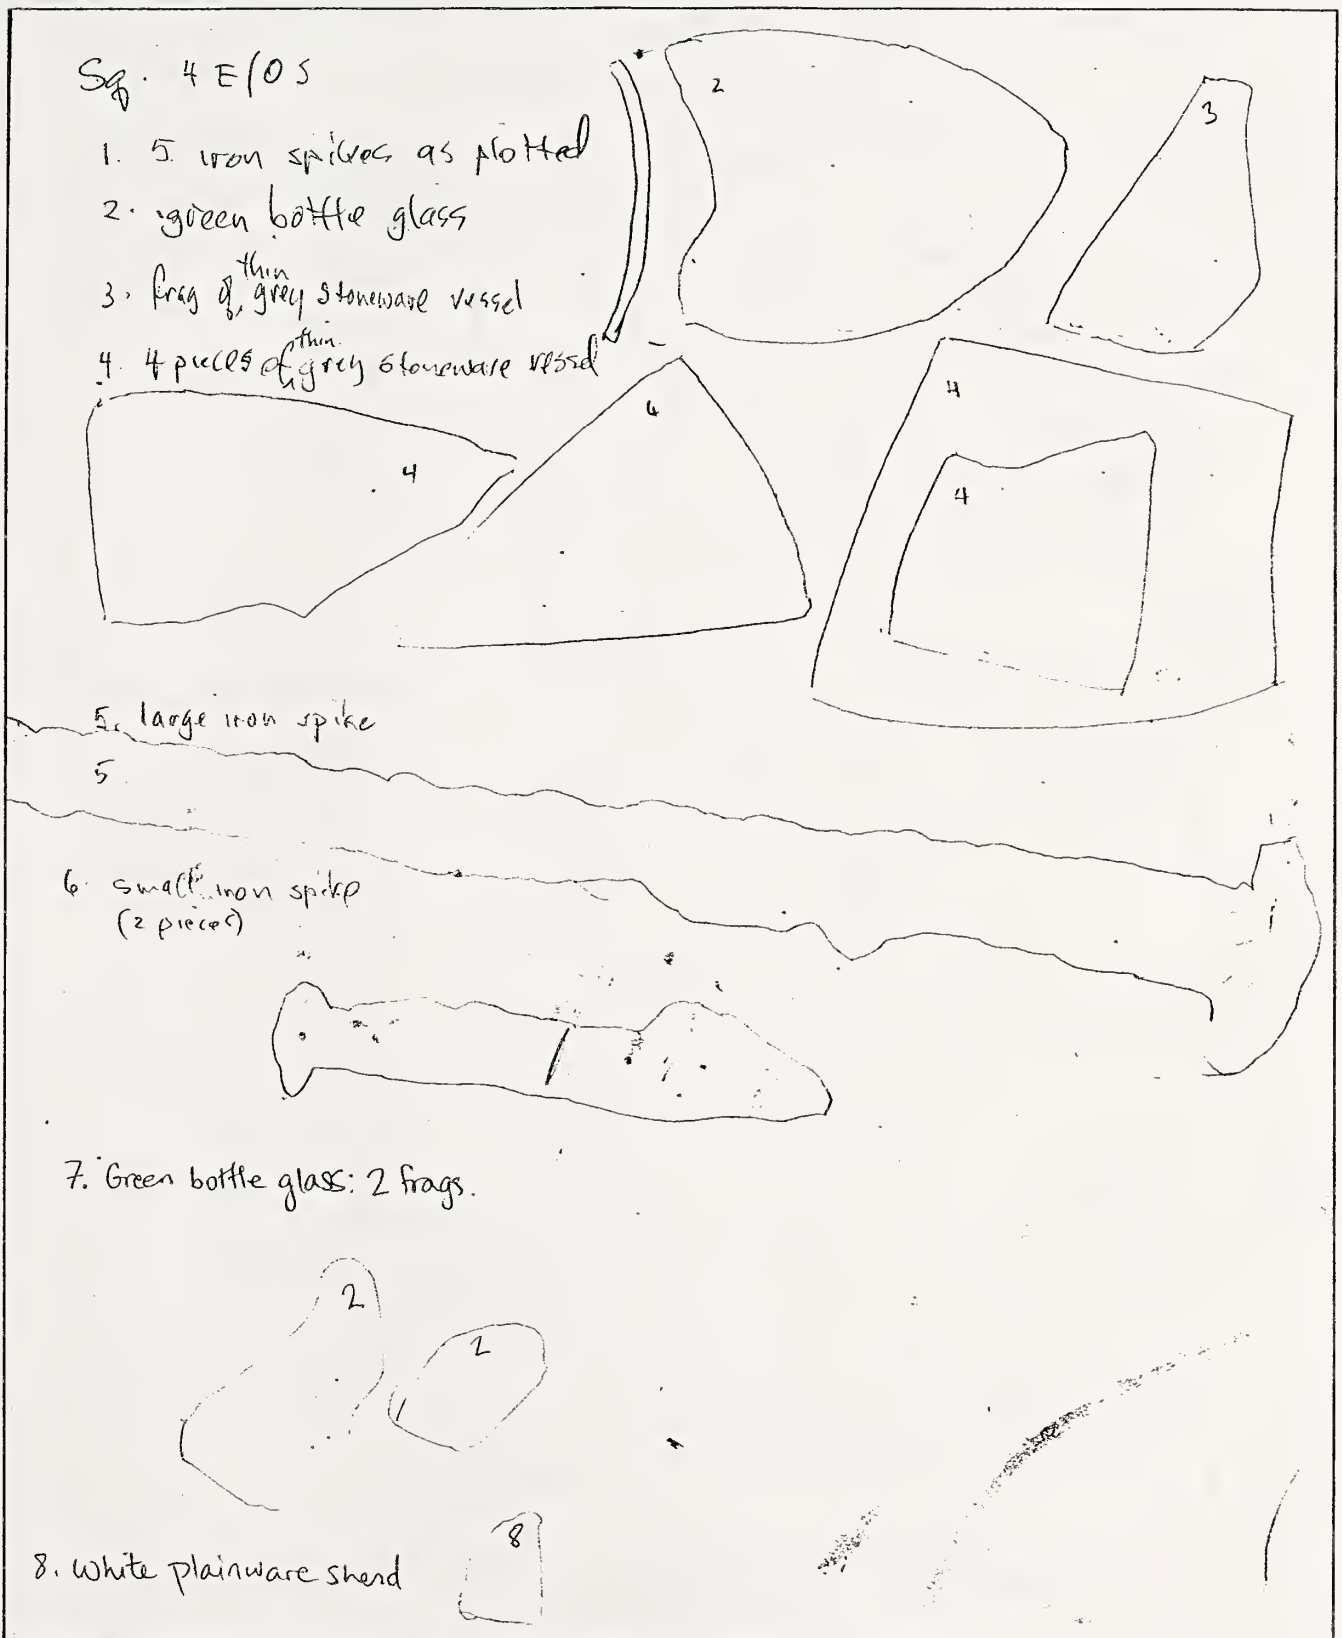 Sq. 4 E/0 S
1. 5 iron spikes as plotted
2. green bottle glass
3. frag of thin grey stoneware vessel
4. 4 pieces of thin grey stoneware vessel
2
3
4
4
4
4
5. large iron spike
5
6. small iron spike
(2 pieces)
7. Green bottle glass: 2 frags.
2
2
8
8. White plainware sherd